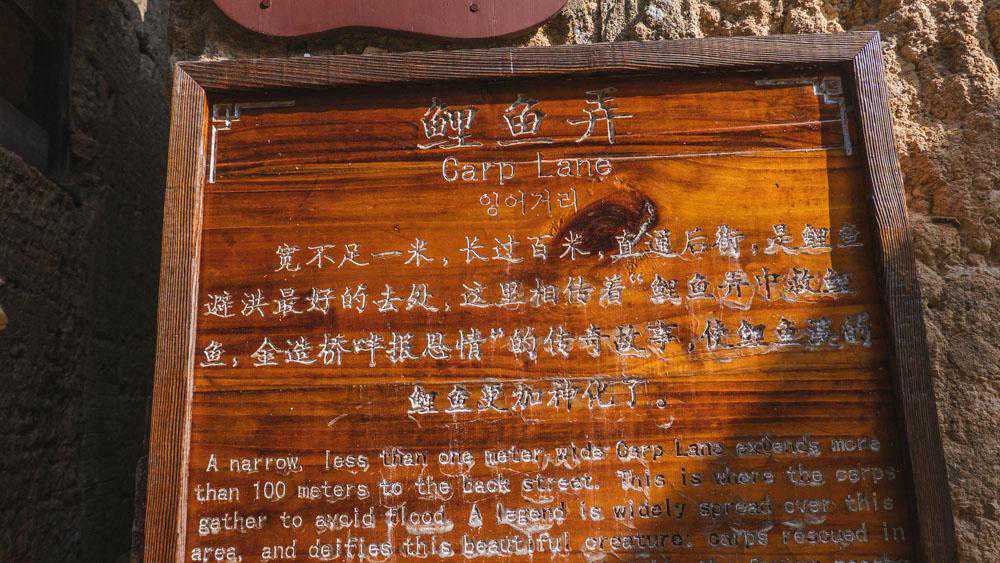 鲤鱼弄
Carp Lane
잉어거리
宽不足一米，长过百米，直通后街，是鲤鱼
避洪最好的去处，这里相传着“鲤鱼弄中救鲤
鱼，金造桥畔报恩情”的传奇故事，使鲤鱼溪的
鲤鱼更加神化了。
A narrow, less than one meter wide Carp Lane extends more
than 100 meters to the back street. This is where the carps
gather to avoid flood. A legend is widely spread over this
area, and deifies this beautiful creature: carps rescued in